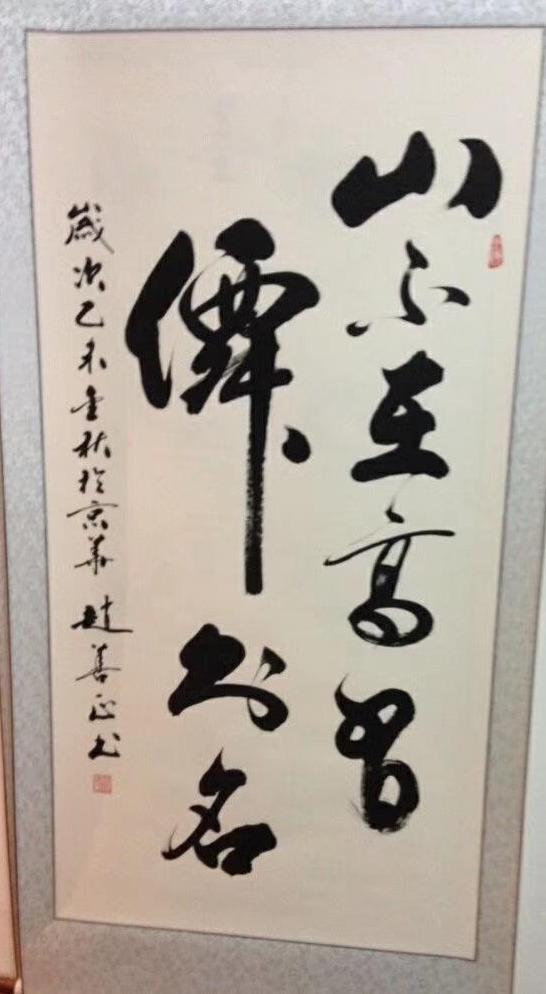 山不在高有
僊則名
歲次乙未金秋於京華 趙善正书